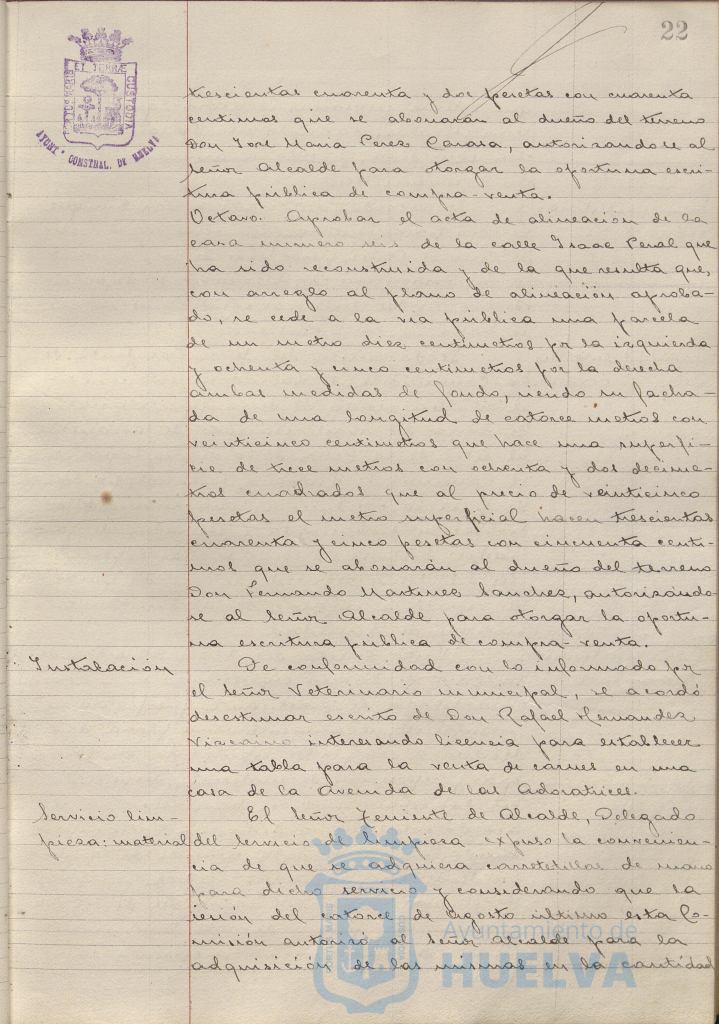 22
ET TERRÆ
CUSTODIA
AYUNT. CONSTNAL. DE HUELVA
trescientas cuarenta y dos pesetas con cuarenta
centimos que se abonarán al dueño del terreno
Don José Maria Perez Carasa, autorizandose al
Señor Alcalde para otorgar la oportuna escri-
tura pública de compra-venta.
Octavo. Aprobar el acta de alineación de la
casa numero seis de la calle Isaac Peral que
ha sido reconstruida y de la que resulta que,
con arreglo al plano de alineación aproba-
do, se cede a la via pública una parcela
de un metro diez centimetros por la izquierda
y ochenta y cinco centimetros por la derecha
ambas medidas de fondo, siendo su facha-
da de una longitud de catorce metros con
veinticinco centimetros que hace una superfi-
cie de trece metros con ochenta y dos decime-
tros cuadrados que al precio de veinticinco
pesetas el metro superficial hacen trescientas
cuarenta y cinco pesetas con cincuenta centi-
mos que se abonarán al dueño del terreno
Don Fernando Martinez Sanchez, autorizando-
se al Señor Alcalde para otorgar la oportu-
na escritura pública de compra-venta.
Instalación
De conformidad con lo informado por
el Señor Veterinario municipal, se acordó
desestimar escrito de Don Rafael Hernandez
Vizcaino interesando licencia para establecer
una tabla para la venta de carnes en una
casa de la Avenida de las Adoratrices.
Servicio lim-
pieza: material
El Señor Teniente de Alcalde, Delegado
del servicio de limpieza expuso la convenien-
cia de que se adquiera carretillas de mano
para dicho servicio y considerando que la
sesión del catorce de Agosto último esta Co-
misión autorizó al Señor Alcalde para la
adquisición de las mismas en la cantidad
Ayuntamiento de
HUELVA